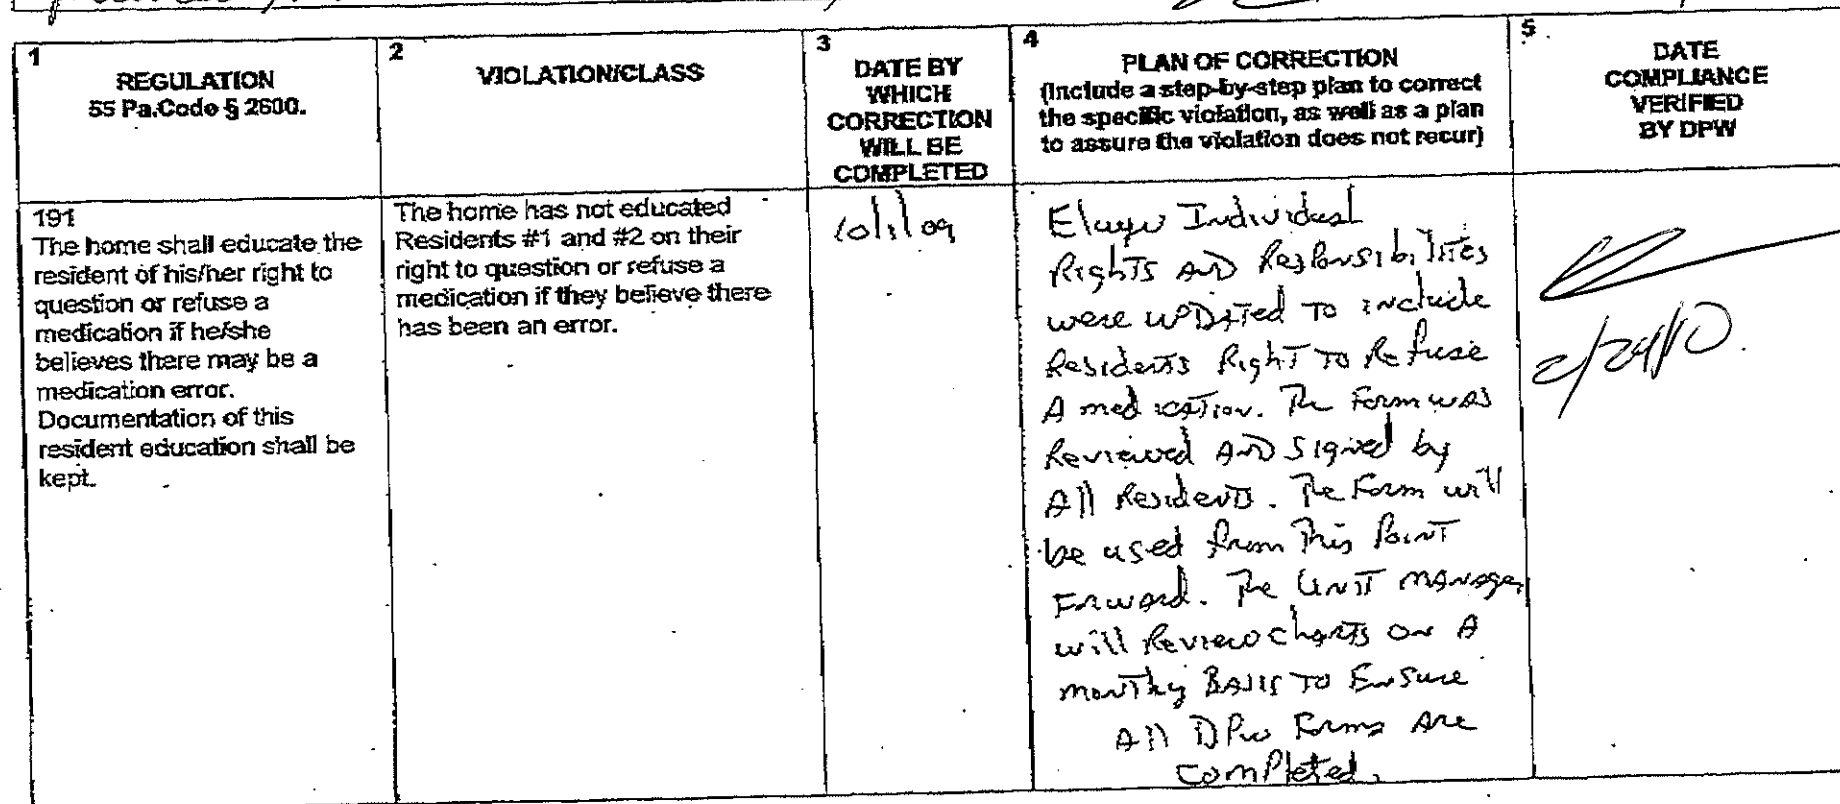 1
REGULATION
55 Pa.Code § 2600.
2
VIOLATION/CLASS
3
DATE BY
WHICH
CORRECTION
WILL BE
COMPLETED
4
PLAN OF CORRECTION
(Include a step-by-step plan to correct
the specific violation, as well as a plan
to assure the violation does not recur)
5.
DATE
COMPLIANCE
VERIFIED
BY DPW
191
The home shall educate the
resident of his/her right to
question or refuse a
medication if he/she
believes there may be a
medication error.
Documentation of this
resident education shall be
kept.
The home has not educated
Residents #1 and #2 on their
right to question or refuse a
medication if they believe there
has been an error.
10/1/09
Individual
Rights AND Responsibilities
were UPDATED TO include
Residents Right TO Refuse
A medication. The Form was
Reviewed AND Signed by
All Residents. The Form will
be used from This Point
Forward. The Unit MANAGER
will Review charts on A
monthly BASIS TO EnSure
All DPW Forms Are
completed.
2/24/10.